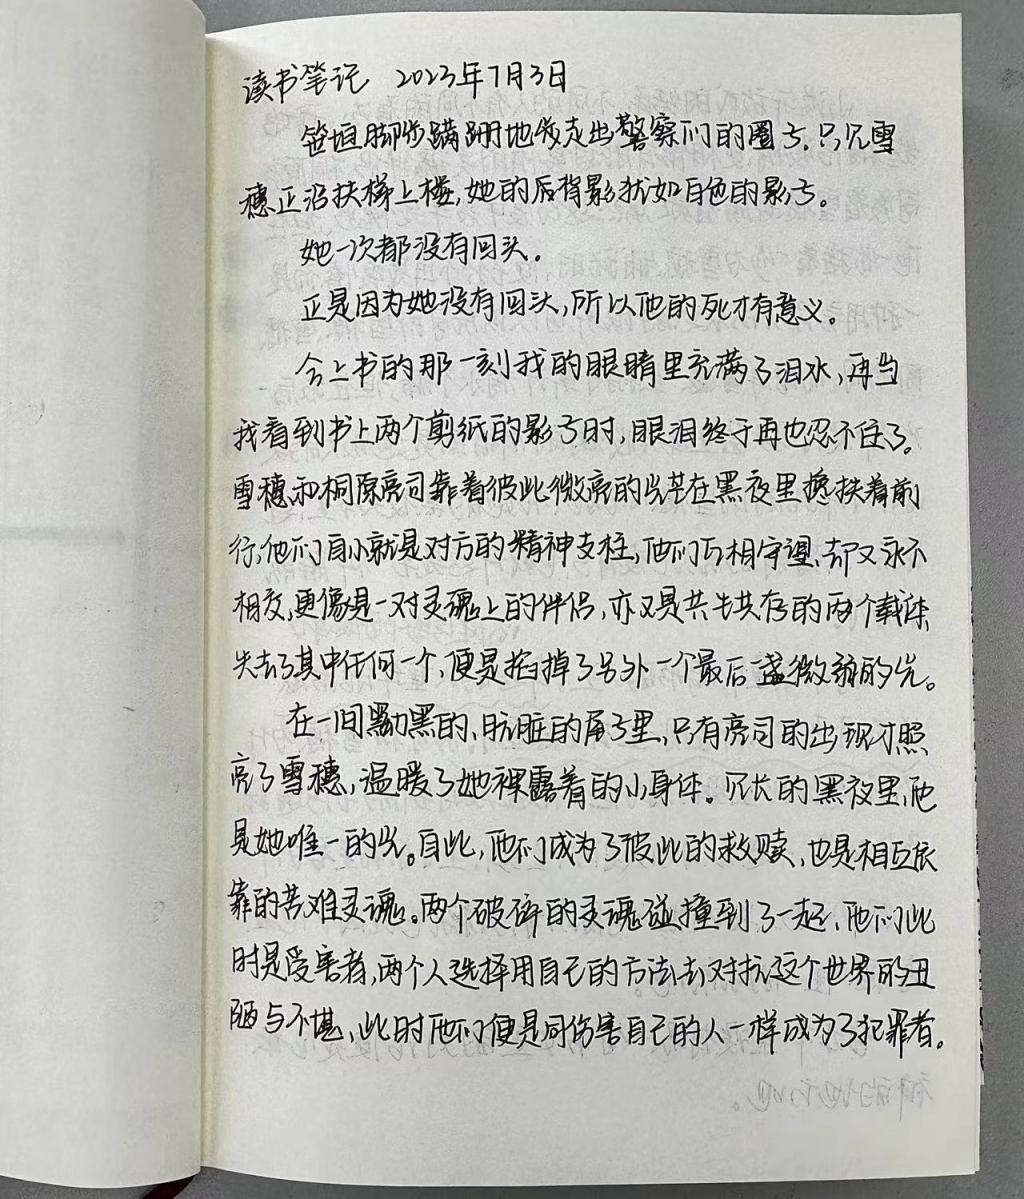 读书笔记 2023年7月3日
笹垣脚步蹒跚地发走出警察们的圈子。只见雪
穗正沿扶梯上楼,她的后背影犹如白色的影子。
她一次都没有回头。
正是因为她没有回头,所以他的死才有意义。
合上书的那一刻我的眼睛里充满了泪水,再当
我看到书上两个剪纸的影子时,眼泪终于再也忍不住了。
雪穗和桐原亮司靠着彼此微亮的光芒在黑夜里搀扶着前
行,他们自小就是对方的精神支柱,他们互相守望、却又永不
相交,更像是一对灵魂上的伴侣,亦又是共生共存的两个载体,
失去了其中任何一个,便是掐掉了另外一个最后一盏微弱的光。
在一间黝黑的、肮脏的角子里,只有亮司的出现才照
亮了雪穗,温暖了她裸露着的小身体。冗长的黑夜里,他
是她唯一的光。自此,他们成为了彼此的救赎,也是相互依
靠的苦难灵魂。两个破碎的灵魂碰撞到了一起,他们此
时是受害者,两个人选择用自己的方法去对抗这个世界的丑
陋与不堪,此时他们便是同伤害自己的人一样成为了犯罪者。